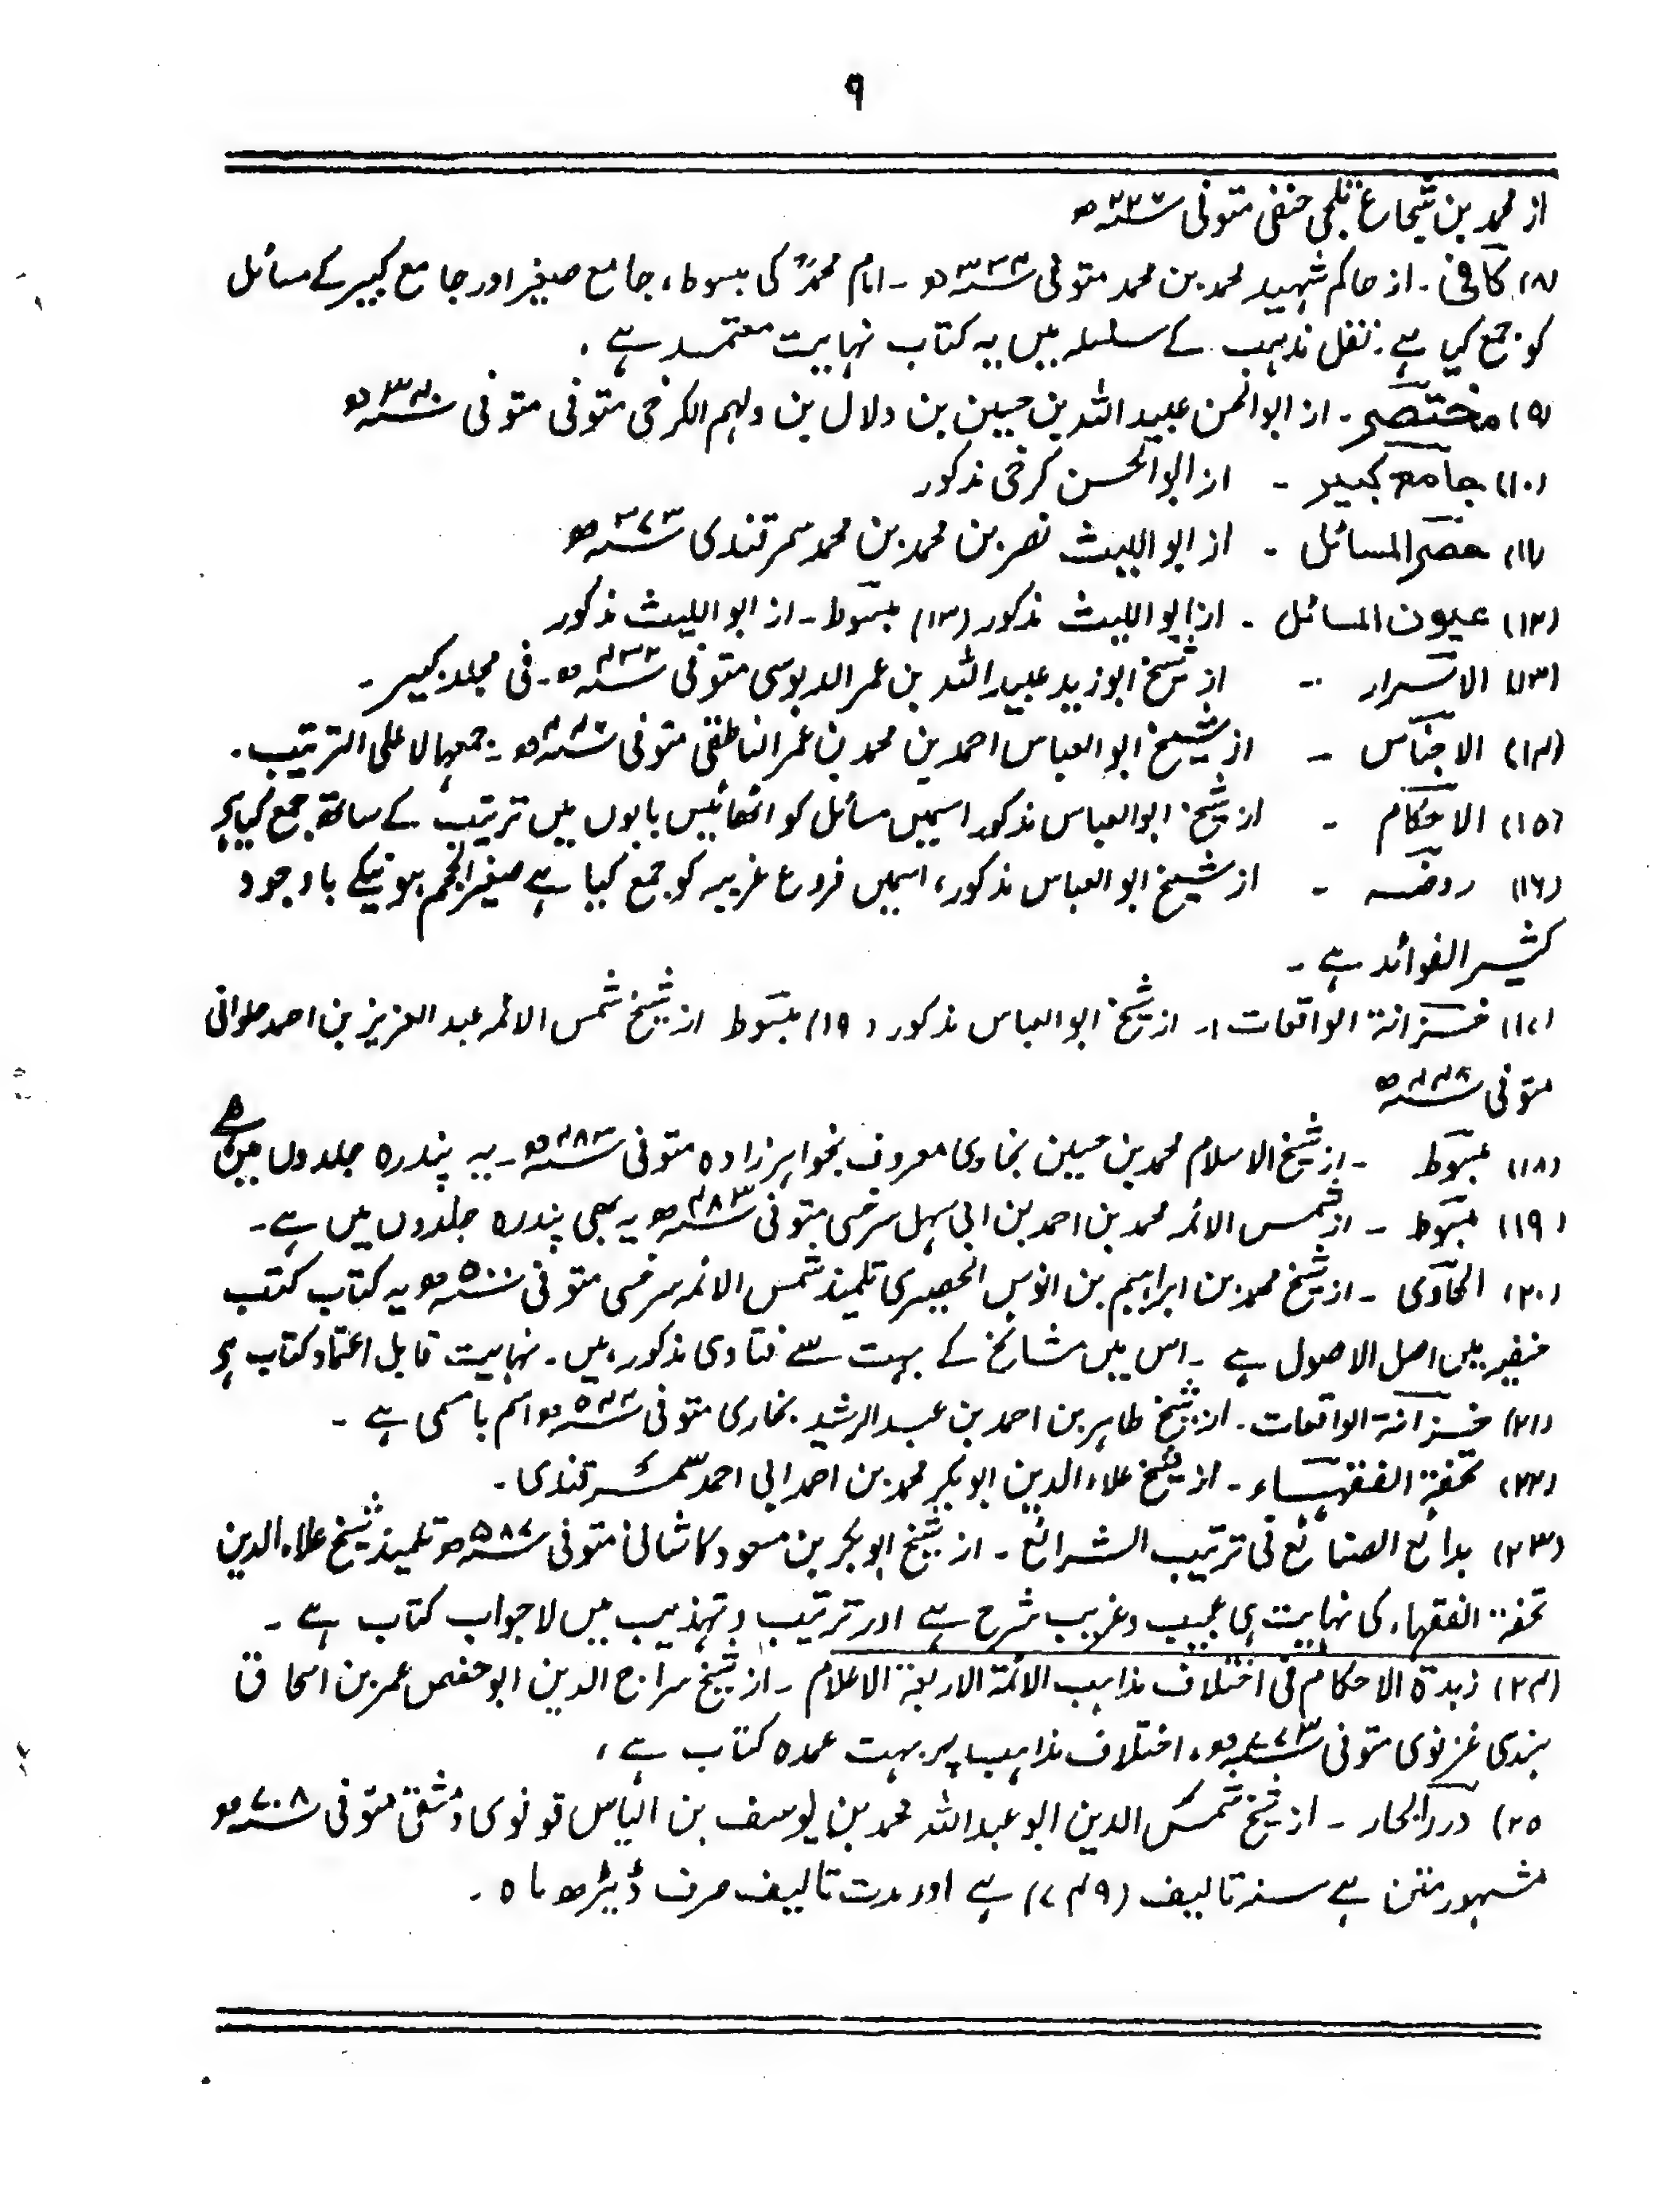 ۹
از محمد بن شجاع ثلجی حنفی متوفی ۲۳۶ھ
(۸) کافی ۔ از حاکم شہید محمد بن محمد متوفی ۳۳۴ھ ۔ امام محمدؒ کی مبسوط، جامع صغیر اور جامع کبیر کے مسائل
کو جمع کیا ہے۔ نقل مذہب کے سلسلہ میں یہ کتاب نہایت معتمد ہے ۔
(۹) مختصر ۔ از ابوالحسن عبید اللہ بن حسین بن دلال بن دلہم الکرخی متوفی متوفی ۳۴۰ھ
(۱۰) جامع کبیر ۔ از ابوالحسن کرخی مذکور
(۱۱) حصر المسائل ۔ از ابو اللیث نصر بن محمد بن محمد سمرقندی ۳۷۳ھ
(۱۲) عیون المسائل ۔ از ابو اللیث مذکور (۱۳) مبسوط ۔ از ابو اللیث مذکور
(۱۳) الاسرار ۔ از شیخ ابو زید عبید اللہ بن عمر الدبوسی متوفی ۴۳۲ھ ۔ فی مجلد کبیر ۔
(۱۴) الاجناس ۔ از شیخ ابوالعباس احمد بن محمد بن عمر الناطفی متوفی ۴۴۶ھ ۔ جمعہا لا علی الترتیب ۔
(۱۵) الاحکام ۔ از شیخ ابوالعباس مذکور اسمیں مسائل کو اٹھائیس بابوں میں ترتیب کے ساتھ جمع کیا ہے
(۱۶) روضہ ۔ از شیخ ابو العباس مذکور، اسمیں فروع غریبہ کو جمع کیا ہے صغیر الحجم ہونیکے باوجود
کثیر الفوائد ہے ۔
(۱۷) خزانۃ الواقعات ۔ از شیخ ابو العباس مذکور (۱۹) مبسوط از شیخ شمس الائمہ عبد العزیز بن احمد حلوانی
متوفی ۴۴۸ھ
(۱۸) مبسوط ۔ از شیخ الاسلام محمد بن حسین بخاری معروف بخواہر زادہ متوفی ۴۸۳ھ ۔ یہ پندرہ جلدوں میں ہے
(۱۹) مبسوط ۔ از شمس الائمہ محمد بن احمد بن ابی سہل سرخسی متوفی ۴۸۳ھ یہ بھی پندرہ جلدوں میں ہے ۔
(۲۰) الحاوی ۔ از شیخ محمد بن ابراہیم بن انوس الحصیری تلمیذ شمس الائمہ سرخسی متوفی ۵۰۰ھ یہ کتاب کتب
حنفیہ میں اصل الاصول ہے ۔ اس میں مشائخ کے بہت سے فتاوی مذکور ہیں ۔ نہایت قابل اعتماد کتاب ہے
(۲۱) خزانۃ الواقعات ۔ از شیخ طاہر بن احمد بن عبد الرشید بخاری متوفی ۵۴۲ھ اسم با مسمی ہے ۔
(۲۲) تحفۃ الفقہاء ۔ از شیخ علاء الدین ابو بکر محمد بن احمد ابی احمد سمرقندی ۔
(۲۳) بدائع الصنائع فی ترتیب الشرائع ۔ از شیخ ابو بکر بن مسعود کاشانی متوفی ۵۸۷ھ تلمیذ شیخ علاء الدین
تحفۃ الفقہاء کی نہایت ہی عجیب و غریب شرح ہے اور ترتیب و تہذیب میں لاجواب کتاب ہے ۔
(۲۴) زبدۃ الاحکام فی اختلاف مذاہب الائمۃ الاربعۃ الاعلام ۔ از شیخ سراج الدین ابو حفص عمر بن اسحاق
ہندی غزنوی متوفی ۷۷۳ھ، اختلاف مذاہب پر بہت عمدہ کتاب ہے ،
(۲۵) درر البحار ۔ از شیخ شمس الدین ابو عبد اللہ محمد بن یوسف بن الیاس قونوی دمشقی متوفی ۷۰۸ھ
مشہور متن ہے سنہ تالیف (۷۴۹) ہے اور مدت تالیف صرف ڈیڑھ ماہ ۔